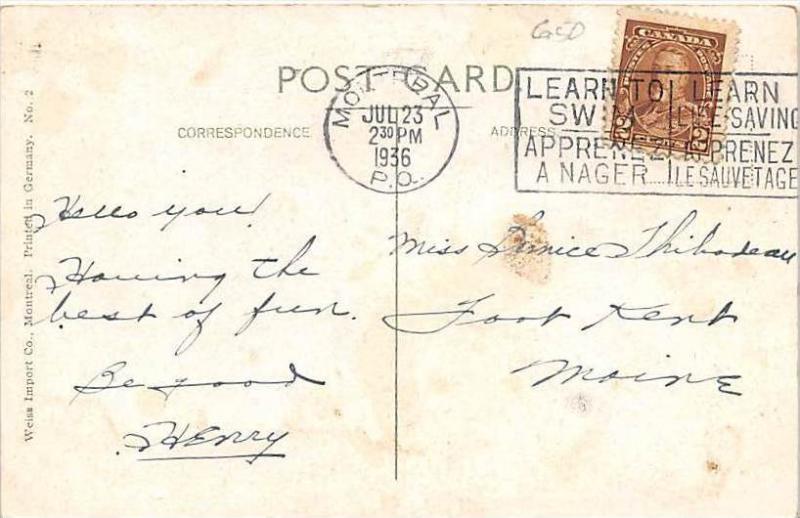 6a5D
POST CARD
CORRESPONDENCE
ADDRESS
MONTREAL
JUL 23
2 30 PM
1936
P.O.
LEARN TO LEARN
SW LIFE-SAVING
APPRENEZ APPRENEZ
A NAGER LE SAUVETAGE
CANADA
2 2
Hello you!
Having the
best of fun.
Be good
HENRY
Miss Eunice Thibodeau
Foot Kent
Maine
Weiss Import Co., Montreal. Printed in Germany. No. 2